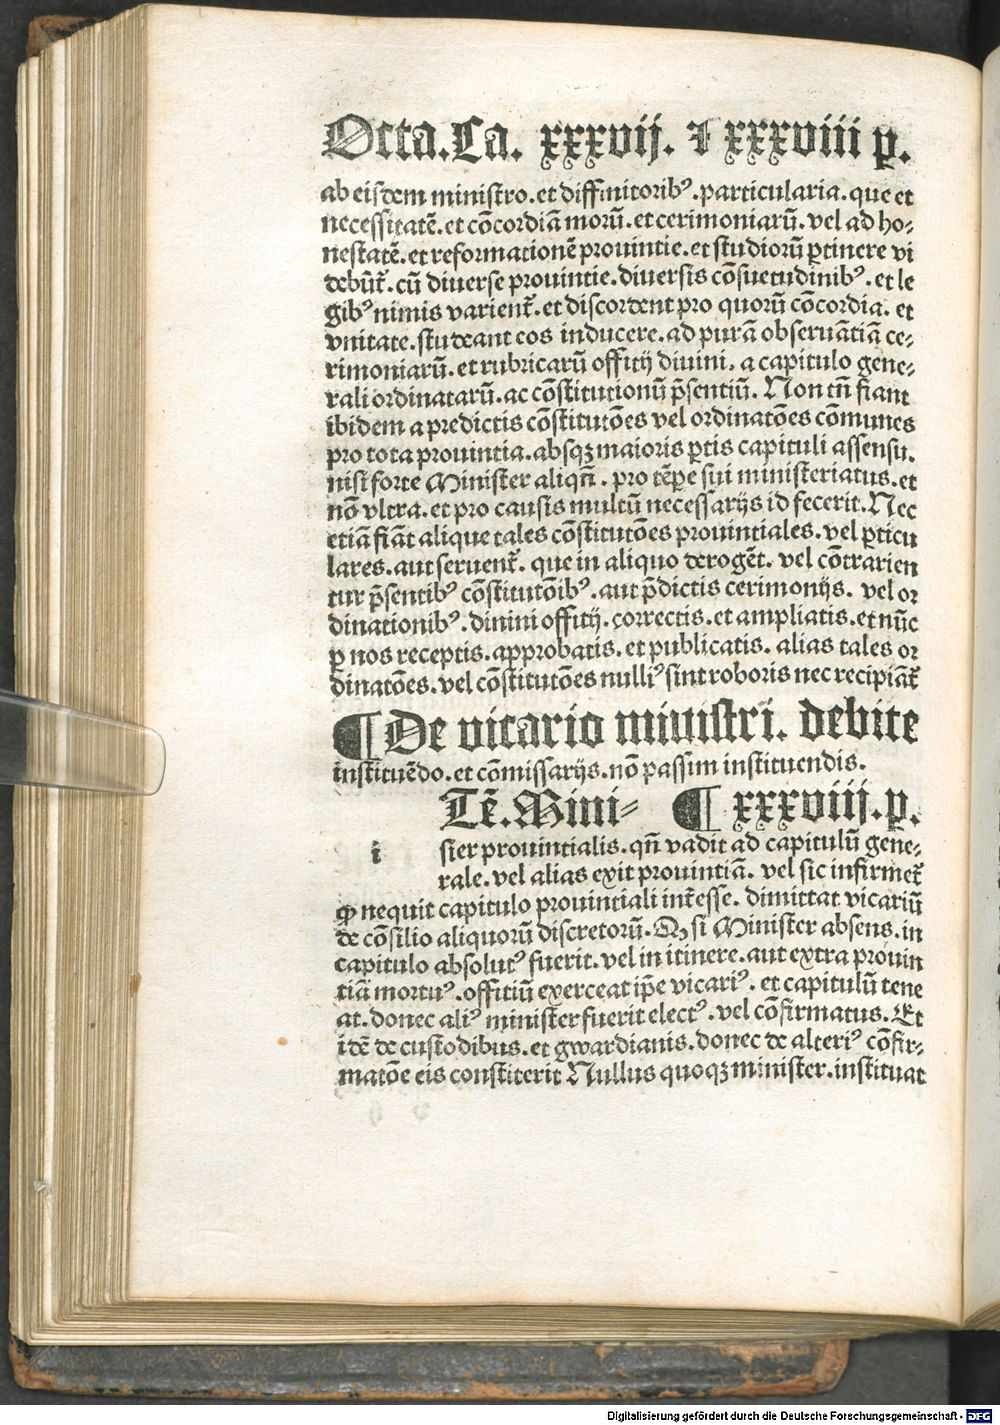 Octa.Ca. xxxvij. ⁊ xxxviii p̲.
ab eisdem ministro. et diffinitoribꝰ. particularia. que et
necessitatē. et cōcordiā morū. et cerimoniarū. vel ad ho-
nestatē. et reformationē prouintie. et studiorū ꝑtinere vi
debūt᷑. cū diuerse prouintie. diuersis cōsuetudinibꝰ. et le
gibꝰ nimis varient᷑. et discordent pro quorū cōcordia. et
vnitate. studeant eos inducere. ad purā obseruātiā ce-
rimoniarū. et rubricarū offitij diuini. a capitulo gene-
rali ordinatarū. ac cōstitutionū p̄sentiū. Non tn̄ fiant
ibidem a predictis cōstitutōes vel ordinatōes cōmunes
pro tota prouintia. absqꝫ maioris ꝑtis capituli assensu.
nisi forte Minister aliqn̄. pro tēꝑe sui ministeriatus. et
nō vltra. et pro causis multū necessarijs id fecerit. Nec
etiā fiāt alique tales cōstitutōes prouintiales. vel ꝑticu
lares. aut seruent᷑. que in aliquo derogēt. vel cōtrarien
tur p̄sentibꝰ cōstitutōibꝰ. aut p̄dictis cerimonijs. vel or
dinationibꝰ. dinini offitij. correctis. et ampliatis. et nūc
ꝑ nos receptis. approbatis. et publicatis. alias tales or
dinatōes. vel cōstitutōes nulliꝰ sint roboris nec recipiāt᷑
¶ De vicario ministri. debite
instituēdo. et cōmissarijs. nō passim instituendis.
Tē. Mini- ¶ xxxviij. p̲.
i ster prouintialis. qn̄ vadit ad capitulū gene-
rale. vel alias exit prouintiā. vel sic infirmet᷑
ꝙ nequit capitulo prouintiali int᷑esse. dimittat vicariū
de cōsilio aliquorū discretorū. Qꝫ si Minister absens. in
capitulo absolutꝰ fuerit. vel in itinere. aut extra prouin
tiā mortuꝰ. offitiū exerceat ip̄e vicariꝰ. et capitulū tene
at. donec aliꝰ minister fuerit electꝰ. vel cōfirmatus. Et
idē de custodibus. et gwardianis. donec de alteriꝰ cōfir-
matōe eis constiterit Nullus quoqꝫ minister. instituat
Digitalisierung gefördert durch die Deutsche Forschungsgemeinschaft - DFG